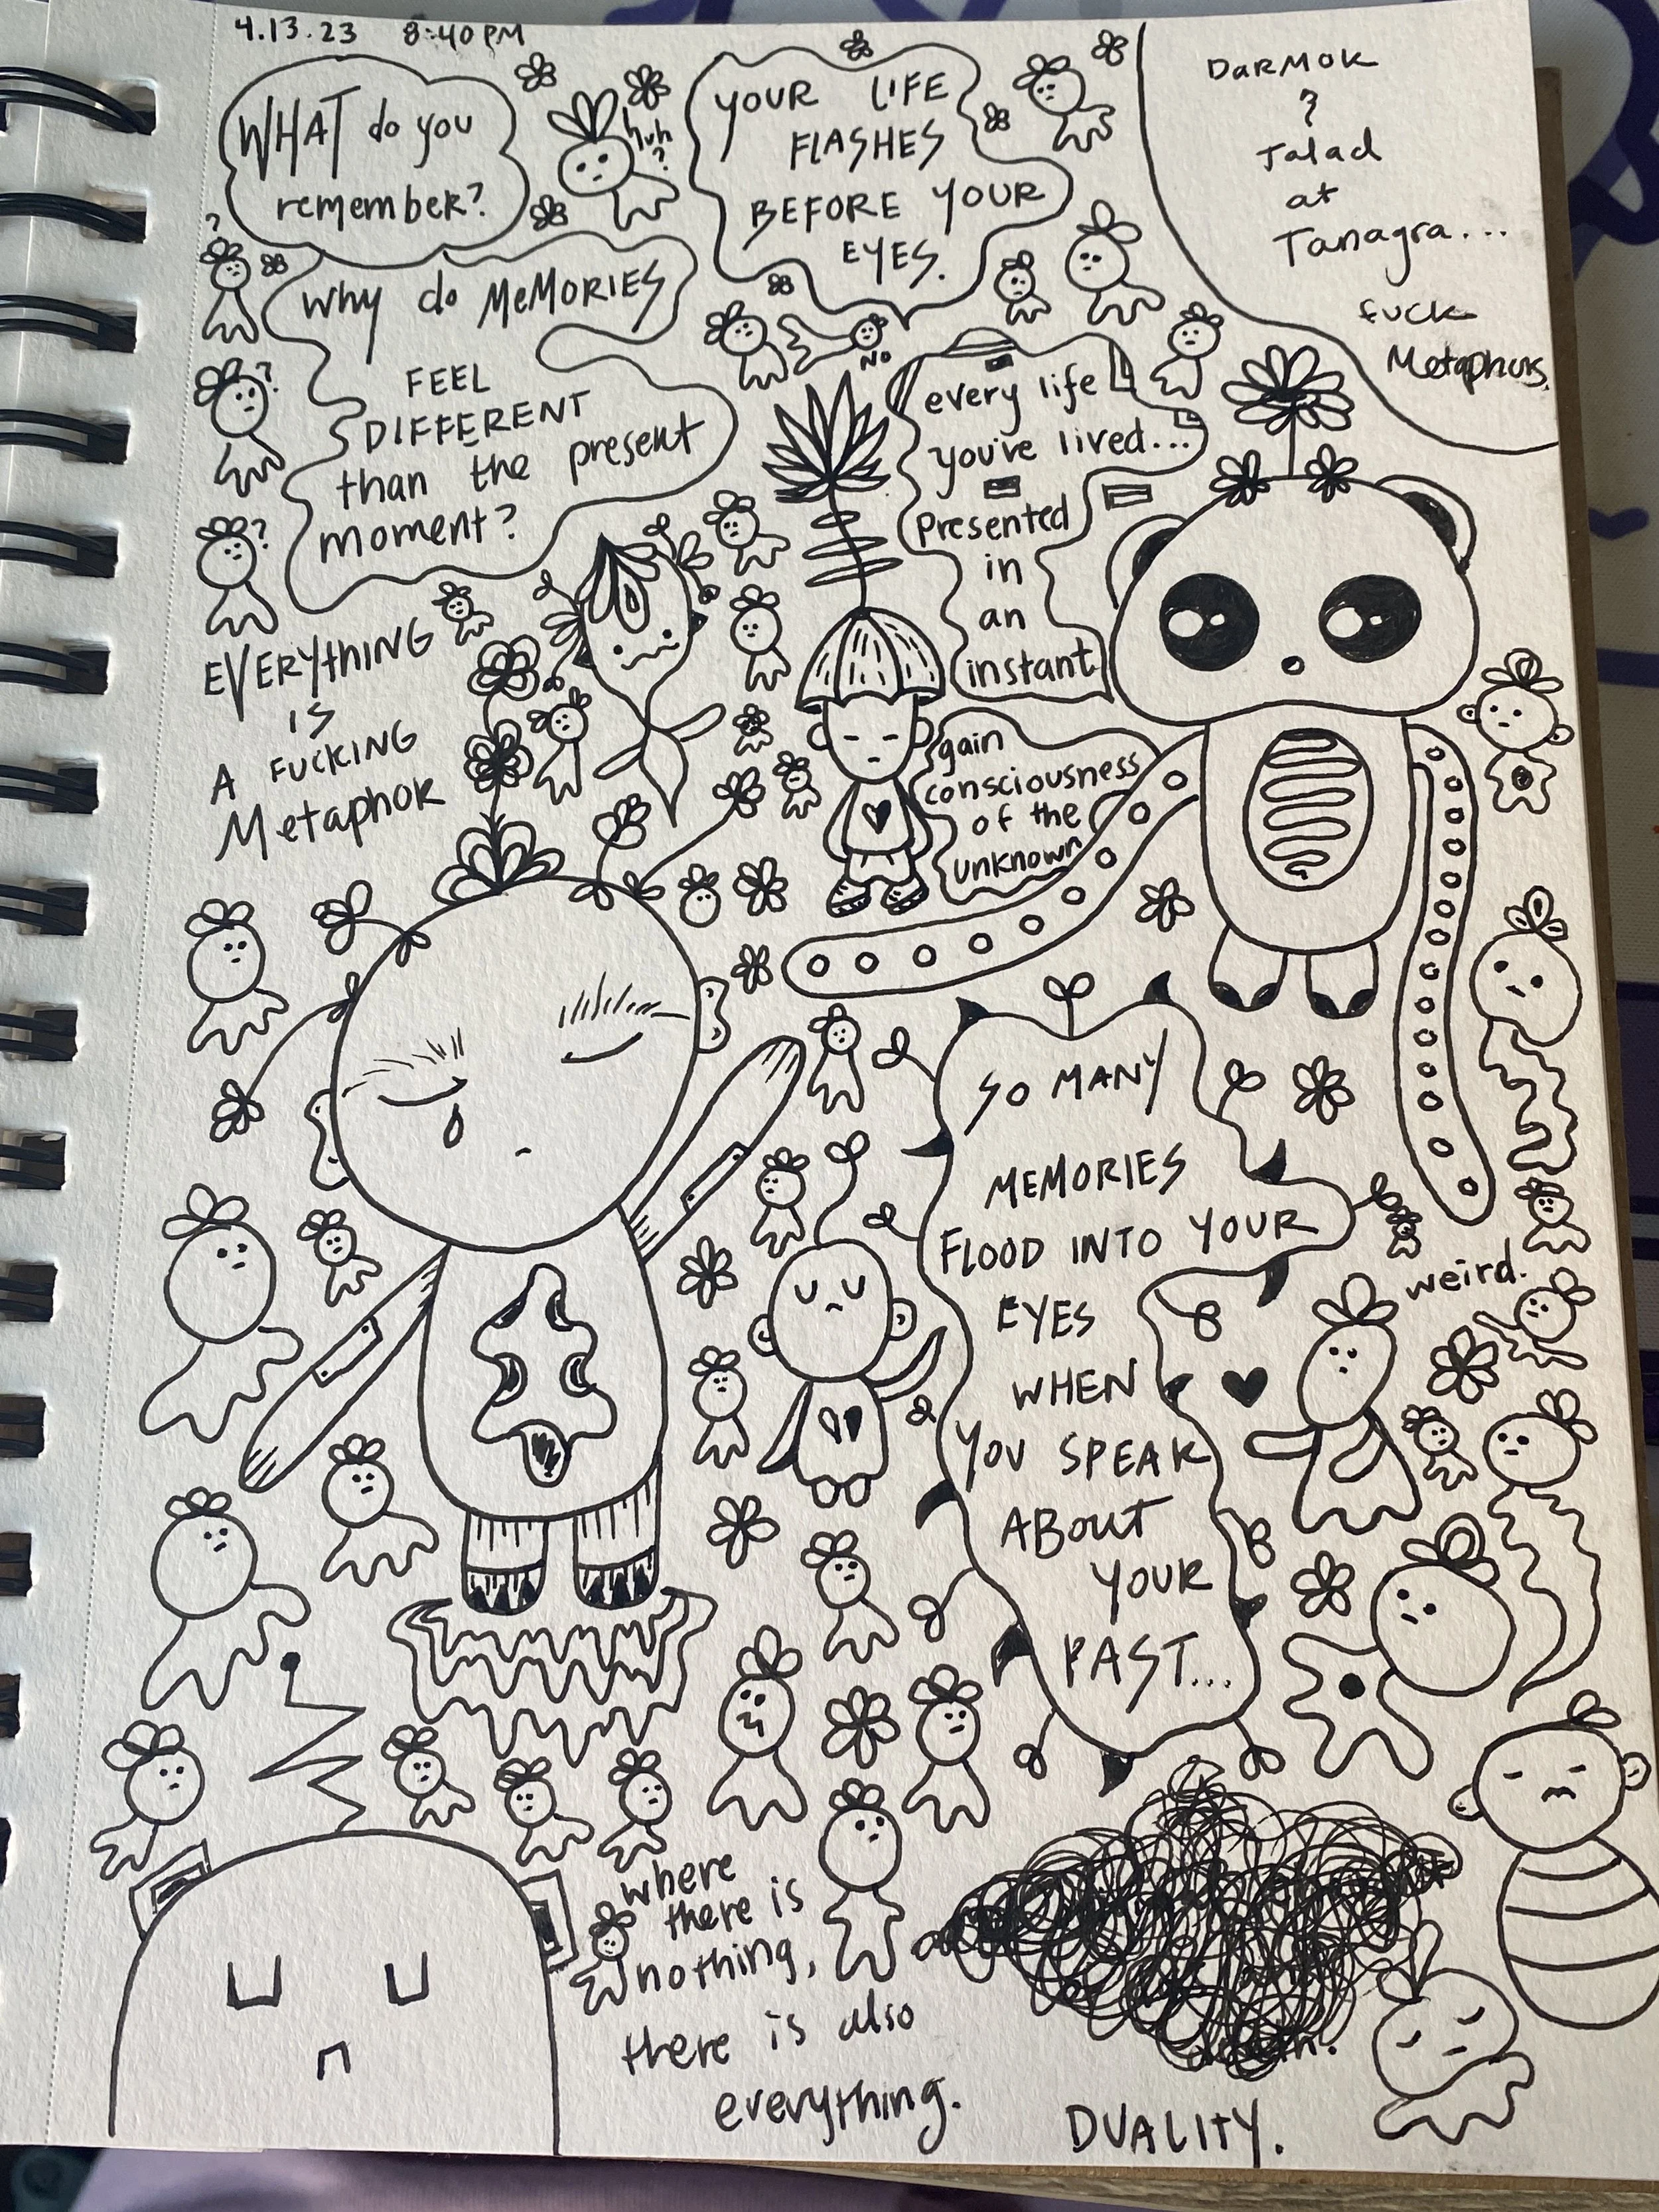 4.13.23 8:40 PM
WHAT do you
remember?
huh
?
YOUR LIFE
FLASHES
BEFORE YOUR
EYES.
DaRMOK
?
Jalad
at
Tanagra...
fuck
Metaphors.
?
Why do MeMORIES
FEEL
DIFFERENT
than the present
moment?
?
?
NO
every life
you've lived...
presented
in
an
instant
EVERYthING
IS
A FUCKING
Metaphor
gain
consciousness
of the
unknown
SO MANY
MEMORIES
FLOOD INTO YOUR
EYES
WHEN
YOU SPEAK
ABOUT
YOUR
PAST...
weird.
where
there is
nothing,
there is also
everything.
DUALITY.